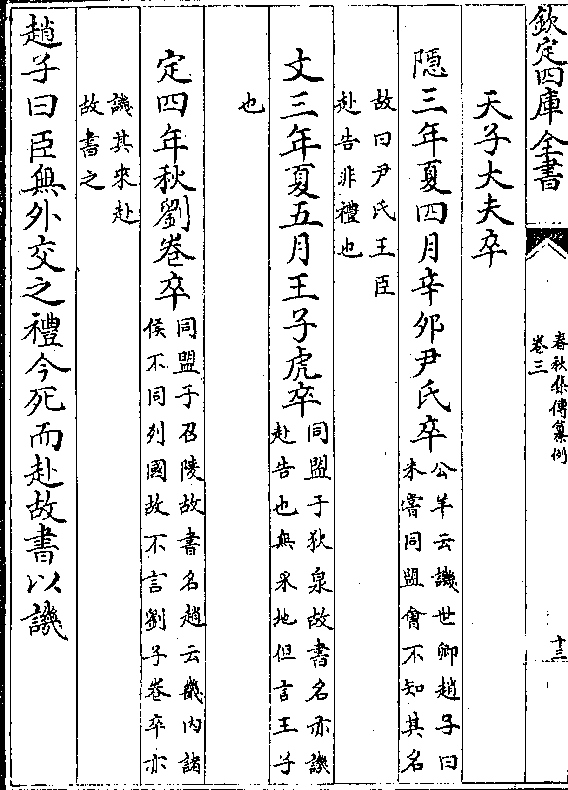 欽定四庫全書
春秋集傳纂例
卷三
十三
天子大夫卒
隱三年夏四月辛卯尹氏卒
公羊云譏世卿趙子曰
未嘗同盟會不知其名
故曰尹氏王臣
赴告非禮也
文三年夏五月王子虎卒
同盟于狄泉故書名亦譏
赴告也無采地但言王子
也
定四年秋劉卷卒
同盟于召陵故書名趙云畿内諸
侯不同列國故不言劉子卷卒亦
譏其來赴
故書之
趙子曰臣無外交之禮今死而赴故書以譏